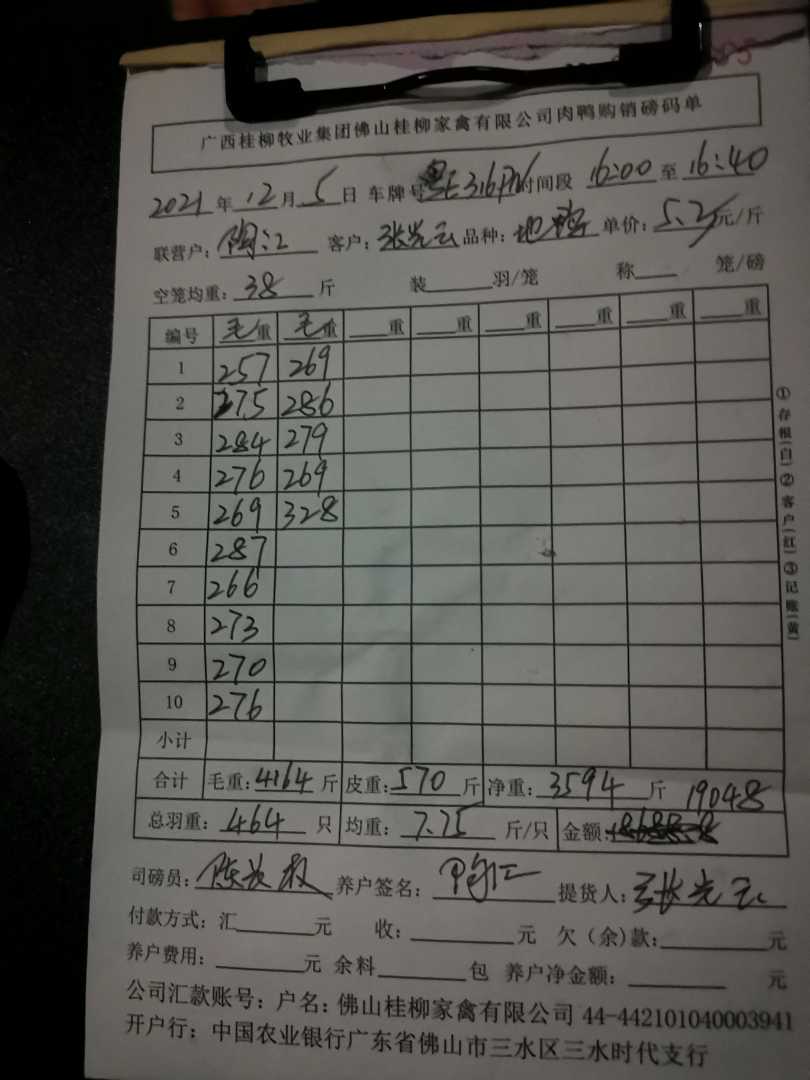 广西桂柳牧业集团佛山桂柳家禽有限公司肉鸭购销磅码单
2021年12月5日 车牌号 粤E316 时间段 16:00 至 16:40
联营户：陶江 客户：张光云 品种：地鸭 单价：5.3元/斤
空笼均重：38 斤 装 羽/笼 称 笼/磅
编号 毛重 毛重 重 重 重 重 重 重
1 257 269
2 275 286
3 284 279
4 276 269
5 269 328
6 287
7 266
8 273
9 270
10 276
小计
合计 毛重：4164 斤 皮重：570 斤 净重：3594 斤 19048
总羽重：464 只 均重：7.75 斤/只 金额：
司磅员：陈 养户签名：陶江 提货人：张光云
付款方式：汇 元 收： 元 欠（余)款： 元
养户费用： 元 余料 包 养户净金额： 元
公司汇款账号：户名：佛山桂柳家禽有限公司 44-442101040003941
开户行：中国农业银行广东省佛山市三水区三水时代支行
①存根(白)②客户(红)③记账(黄)